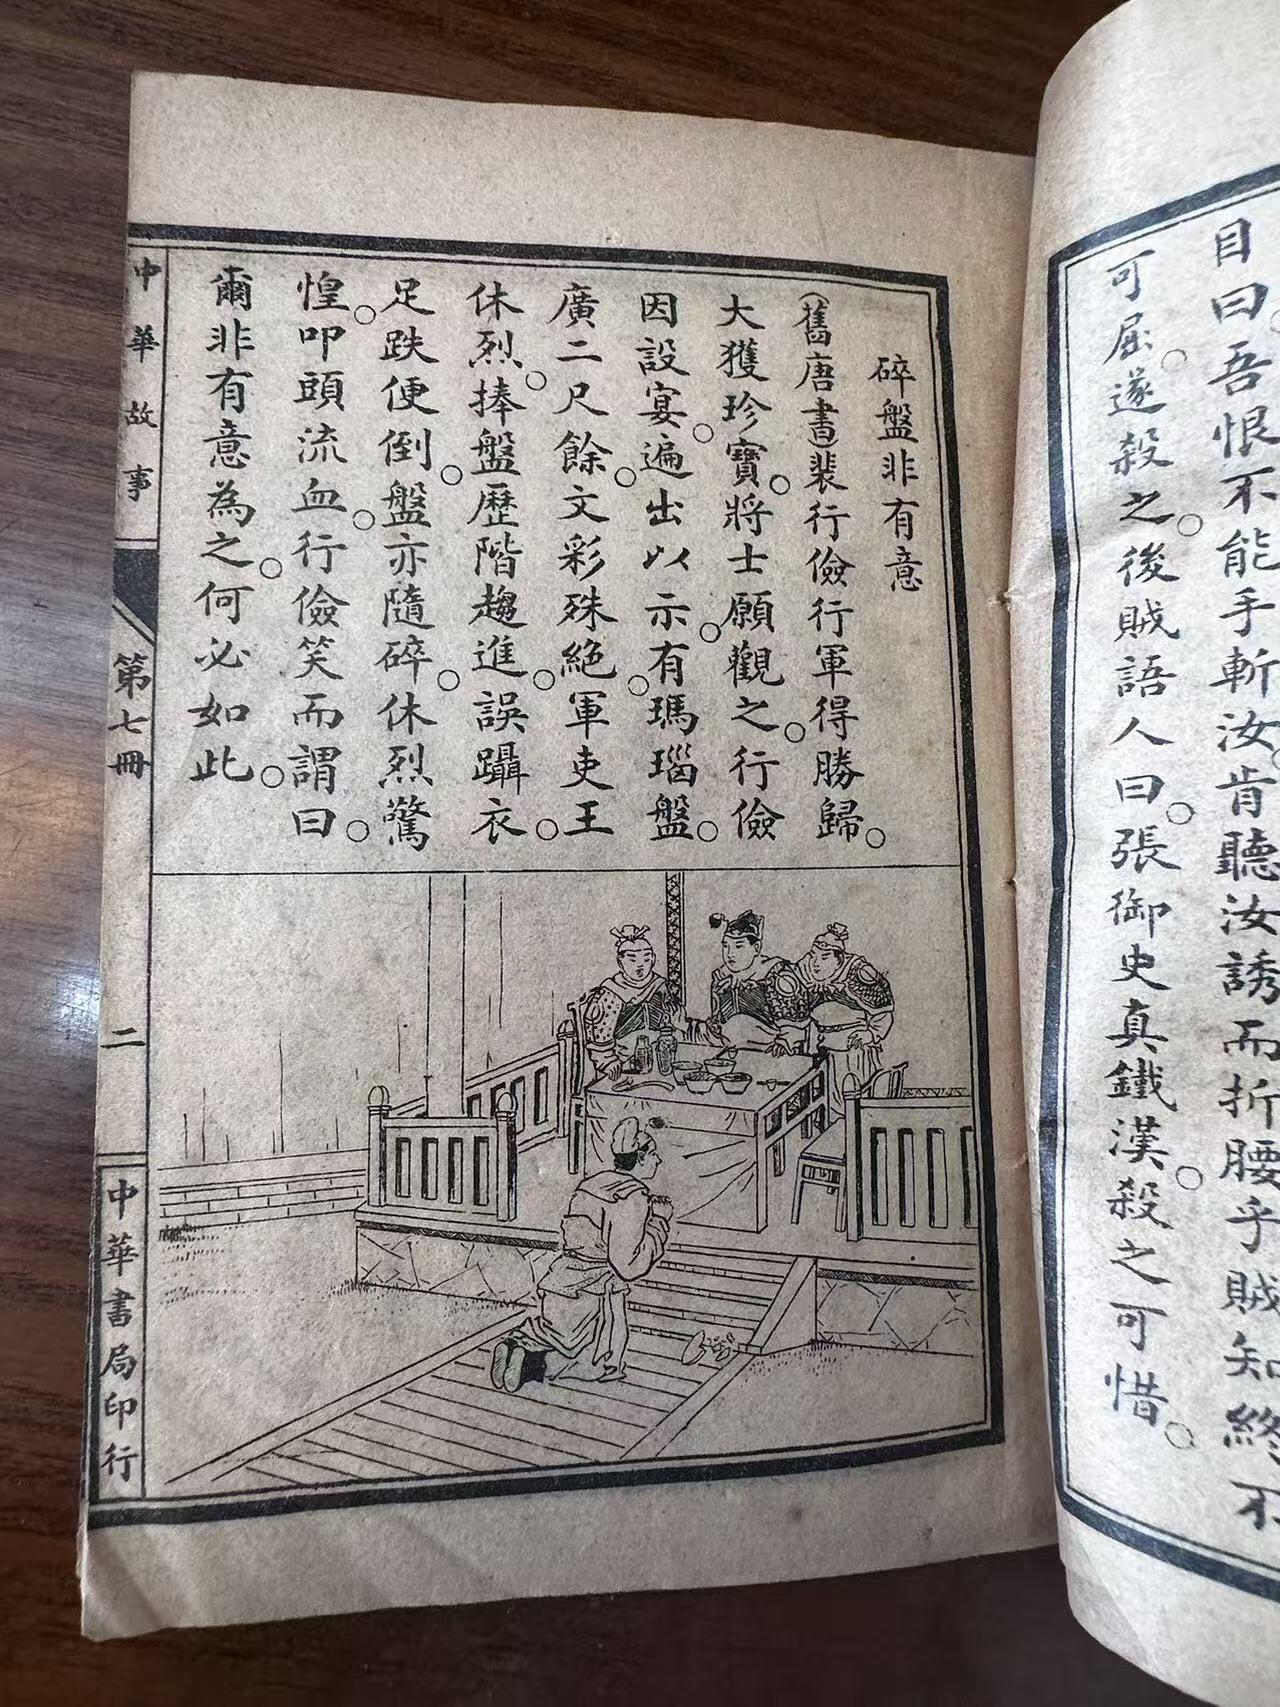 目曰。吾恨不能手斬汝。肯聽汝誘而折腰乎賊知終不
可屈。遂殺之。後賊語人曰。張御史真鐵漢。殺之可惜。
碎盤非有意
(舊唐書)裴行儉行軍得勝歸。
大獲珍寶。將士願觀之。行儉
因設宴。遍出以示。有瑪瑙盤。
廣二尺餘。文彩殊絕。軍吏王
休烈。捧盤歷階趨進。誤躡衣。
足跌便倒。盤亦隨碎。休烈驚
惶。叩頭流血。行儉笑而謂曰。
爾非有意為之。何必如此。
中華故事
第七冊
二
中華書局印行